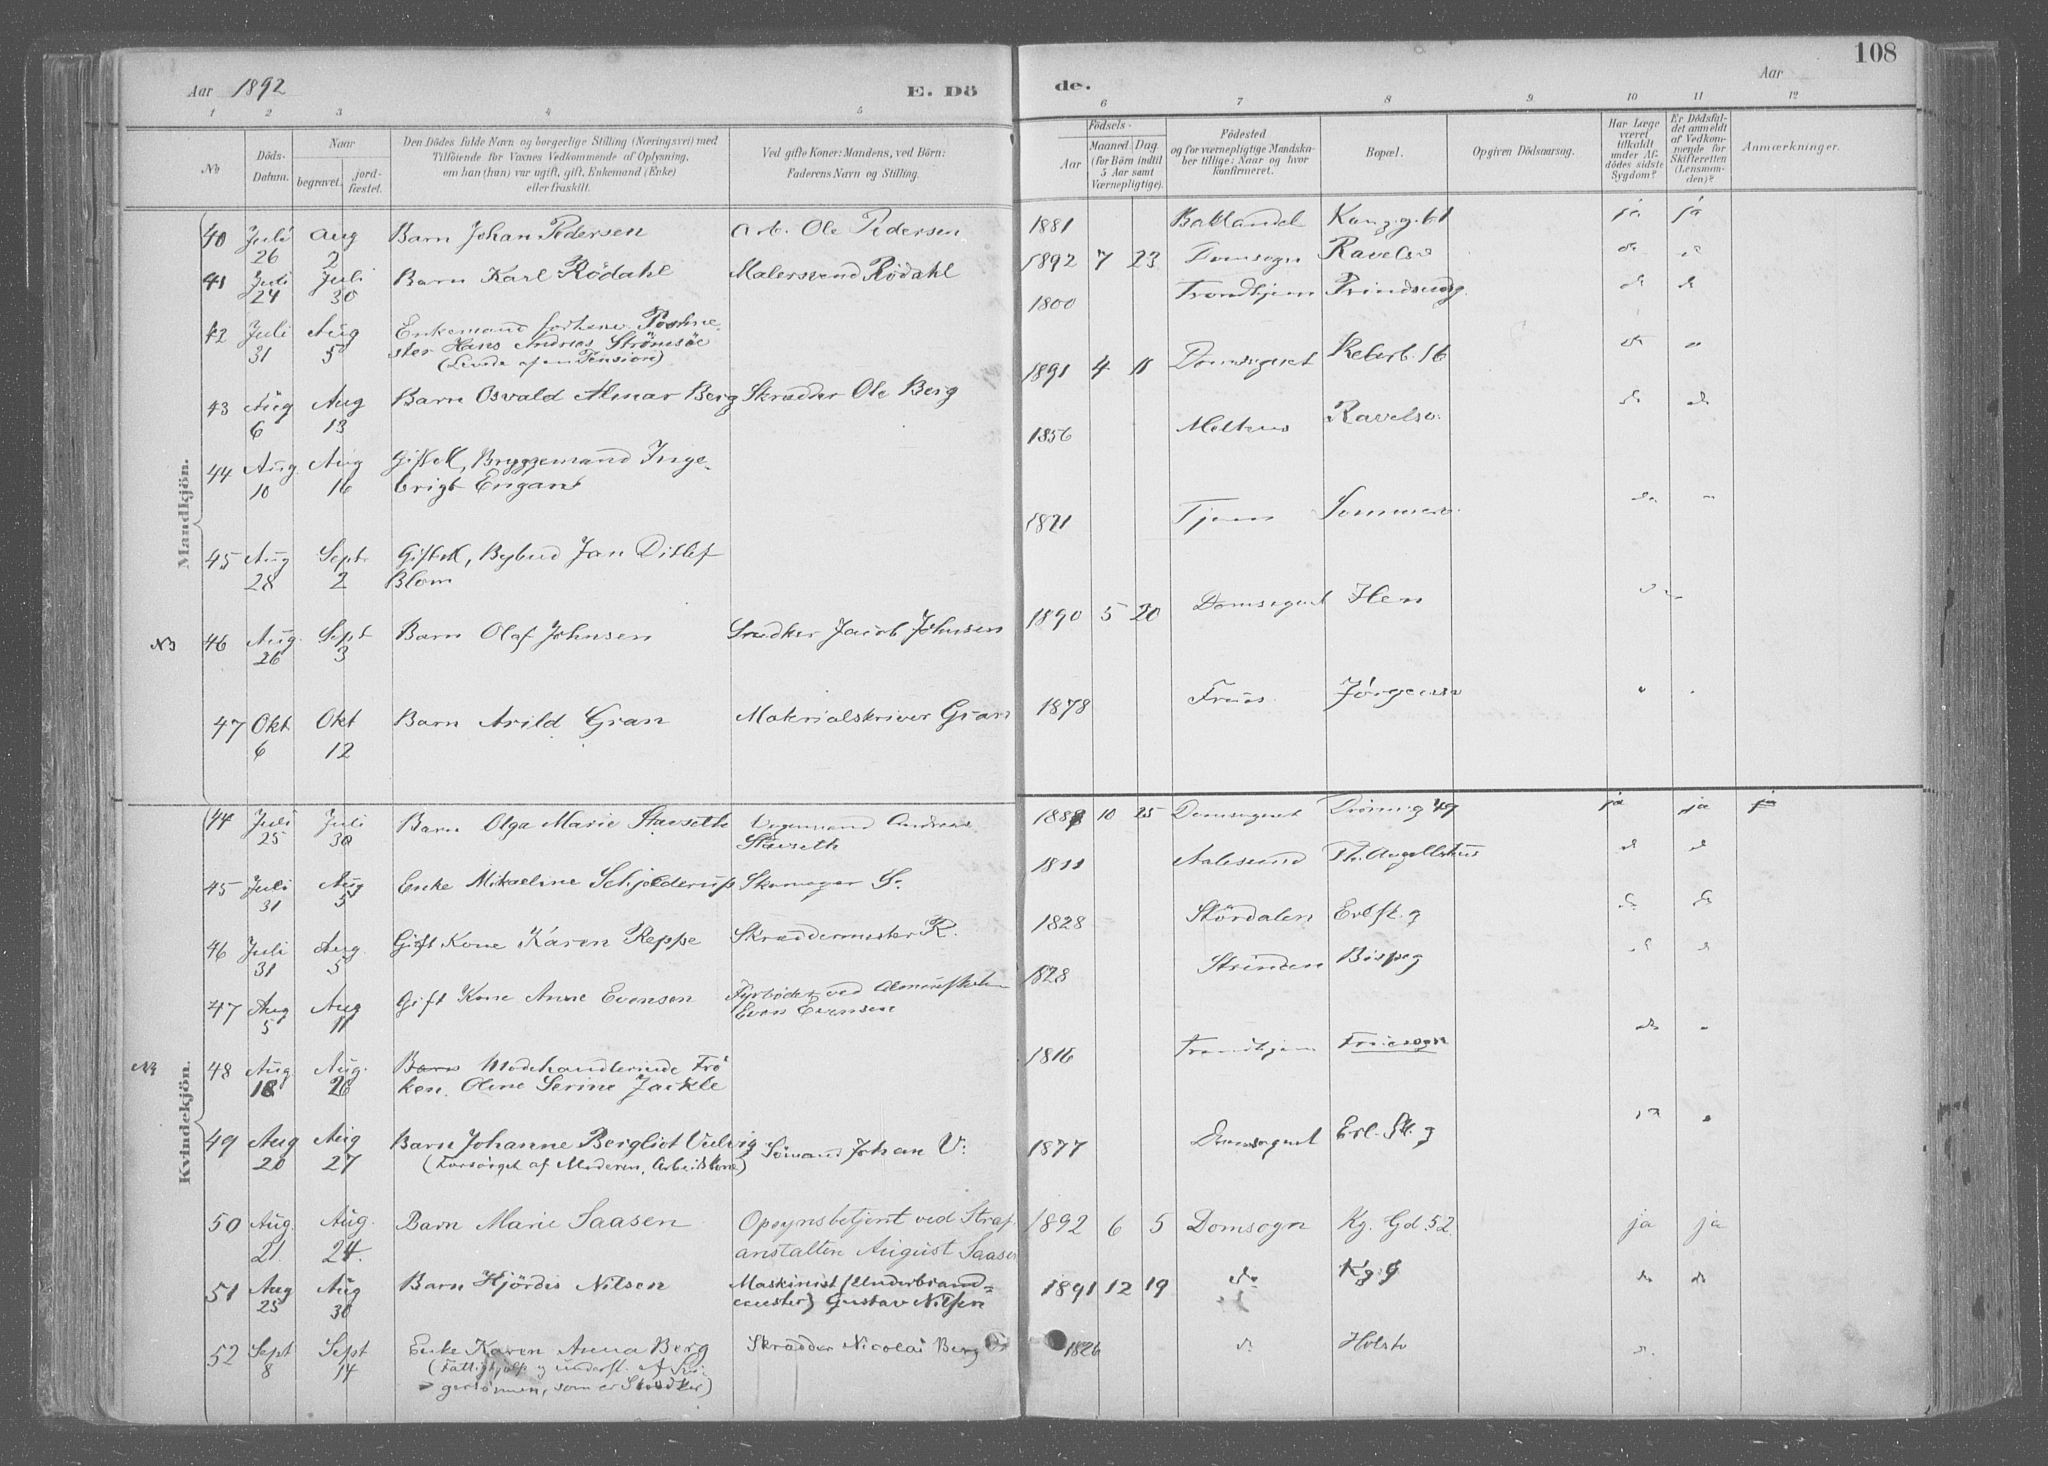 Aar 1892 E. Dö
de. Aar 108
1 2 3 4 5
6 7 8 9. 10 11 12
No
Döds-Datum.
Naar
begravet.
jordfæstet.
Den Dödes fulde Navn og borgerlige Stilling (Næringsvei) med
Tilföiende for Voxnes Vedkommende af Oplysning,
om han (hun) var ugift, gift, Enkemand (Enke)
eller fraskilt.
Ved gifte Koner: Mandens, ved Börn:
Faderens Navn og Stilling.
Födsels-
Aar
Maaned. Dag.
(for Börn indtil
5 Aar samt
Værnepligtige).
Födested
og for værnepligtige Mandska-
ber tillige: Naar og hvor
konfirmeret.
Bopæl.
Opgiven Dödsaarsag.
Har Læge
været
tilkaldt
under Af-
dödes sidste
Sygdom?
Er Dödsfal-
det anmeldt
af Vedkom-
mende for
Skifteretten
(Lensman-
den)?
Anmærkninger.
Mandkjön.
40 Juli 26 Aug 2 Barn Johan Pedersen Arb. Ole Pedersen 1881 Baklandet ja ja
41 Juli 24 Juli 30 Barn Karl Rödahl Malersvend Rödahl 1892 7 23 Domsogn Ravelsv do
42 Juli 31 Aug 5 Enkemand forhenv. Postme-
ster Hans Andreas Strömsöe
(Levede af en Pension) 1800 Trondhjem Prindsensg. do do
43 Aug 6 Aug 13 Barn Osvald Almar Berg Skrædder Ole Berg 1891 4 11 Domsognet do
44 Aug. 10 Aug 16 Gift M, Bryggemand Inge-
brigt Engan 1856 Meldhus Ravelsv. do do
45 Aug 28 Sept. 2 Gift M, Bybud Jan Ditlef
Blom 1821 Sommerv. do
N3 46 Aug. 26 Sept 3 Barn Olaf Johnsen Snedker Jacob Johnsen 1890 5 20 Domsognet Ilen
47 Okt 6 Okt 12 Barn Arild Gran Materialskriver Gran 1878 Frues Jörgensv
Kvindekjön.
44 Juli 25 Juli 30 Barn Olga Marie Stavseth Vognmand Andreas
Stavseth 10 25 Domsognet Dronn.g 49 ja ja ja
45 Juli 31 Aug 5 Enke Mikaeline Schjölderup Skomager S. 1811 Aalesund Th. Angellshus do do
46 Juli 31 Aug. 5 Gift Kone Karen Reppe Skræddermester R. 1828 Stördalen Erl.sk.g do do
47 Aug 5 Aug 11 Gift Kone Anne Evensen Fyrböder ved
Even Evensen 1828 Strinden Bispeg do do
48 Aug 18 Aug. 26 Barn Modehandlerinde Frö
ken. Oline Serine Jackle 1816 Trondhjem Fruesogn do
49 Aug 20 Aug 27 Barn Johanne Bergliot Vulvig Sömand Johan V.
(Forsörget af Moderen, Arbeidskone) 1877 Domsognet Erl. Sk. g do
50 Aug. 21. Aug. 24. Barn Marie Saasen Opsynsbetjent ved Straf-
anstalten August Saasen 1892 6 5 Domsogn Kg. Gd 52. ja ja
51 Aug 25 Aug 30 Barn Hjördis Nilsen Maskinist (Underbrand=
mester) Gustav Nilsen 1891 12 19 do Kg. g do do
52 Sept 8 Sept 14 Enke Karen Anna Berg Skrædder Nicolai Berg
(Fattighjælp og underst. af Svi-
gersönnen, som er Snedker) 1826 do do